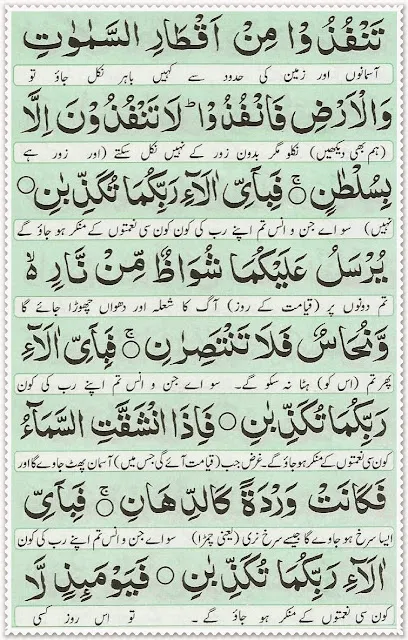 تَنْفُذُوْا مِنْ اَقْطَارِ السَّمٰوٰتِ
آسمانوں اور زمین کی حدود سے کہیں باہر نکل جاؤ تو
وَالْاَرْضِ فَانْفُذُوْا ؕ لَا تَنْفُذُوْنَ اِلَّا
(ہم بھی دیکھیں) نکلو مگر بدون زور کے نہیں نکل سکتے (اور زور ہے
بِسُلْطٰنٍ ۚ فَبِاَىِّ اٰلَآءِ رَبِّكُمَا تُكَذِّبٰنِ
نہیں) سو اے جن و انس تم اپنے رب کی کون کون سی نعمتوں کے منکر ہو جاؤ گے
يُرْسَلُ عَلَيْكُمَا شُوَاظٌ مِّنْ نَّارٍ ۙ
تم دونوں پر (قیامت کے روز) آگ کا شعلہ اور دھواں چھوڑا جائے گا
وَّنُحَاسٌ فَلَا تَنْتَصِرٰنِ ۚ فَبِاَىِّ اٰلَآءِ
پھر تم (اس کو) ہٹا نہ سکو گے۔ سو اے جن و انس تم اپنے رب کی کون
رَبِّكُمَا تُكَذِّبٰنِ فَاِذَا انْشَقَّتِ السَّمَآءُ
کون سی نعمتوں کے منکر ہو جاؤ گے۔ غرض جب (قیامت آئے گی جس میں) آسمان پھٹ جاوے گا اور
فَكَانَتْ وَرْدَةً كَالدِّهَانِ ۚ فَبِاَىِّ
ایسا سرخ ہو جاوے گا جیسے سرخ نری (یعنی چمڑا) سو اے جن و انس تم اپنے رب کی کون
اٰلَآءِ رَبِّكُمَا تُكَذِّبٰنِ فَيَوْمَئِذٍ لَّا
کون سی نعمتوں کے منکر ہو جاؤ گے ۔ تو اس روز کسی